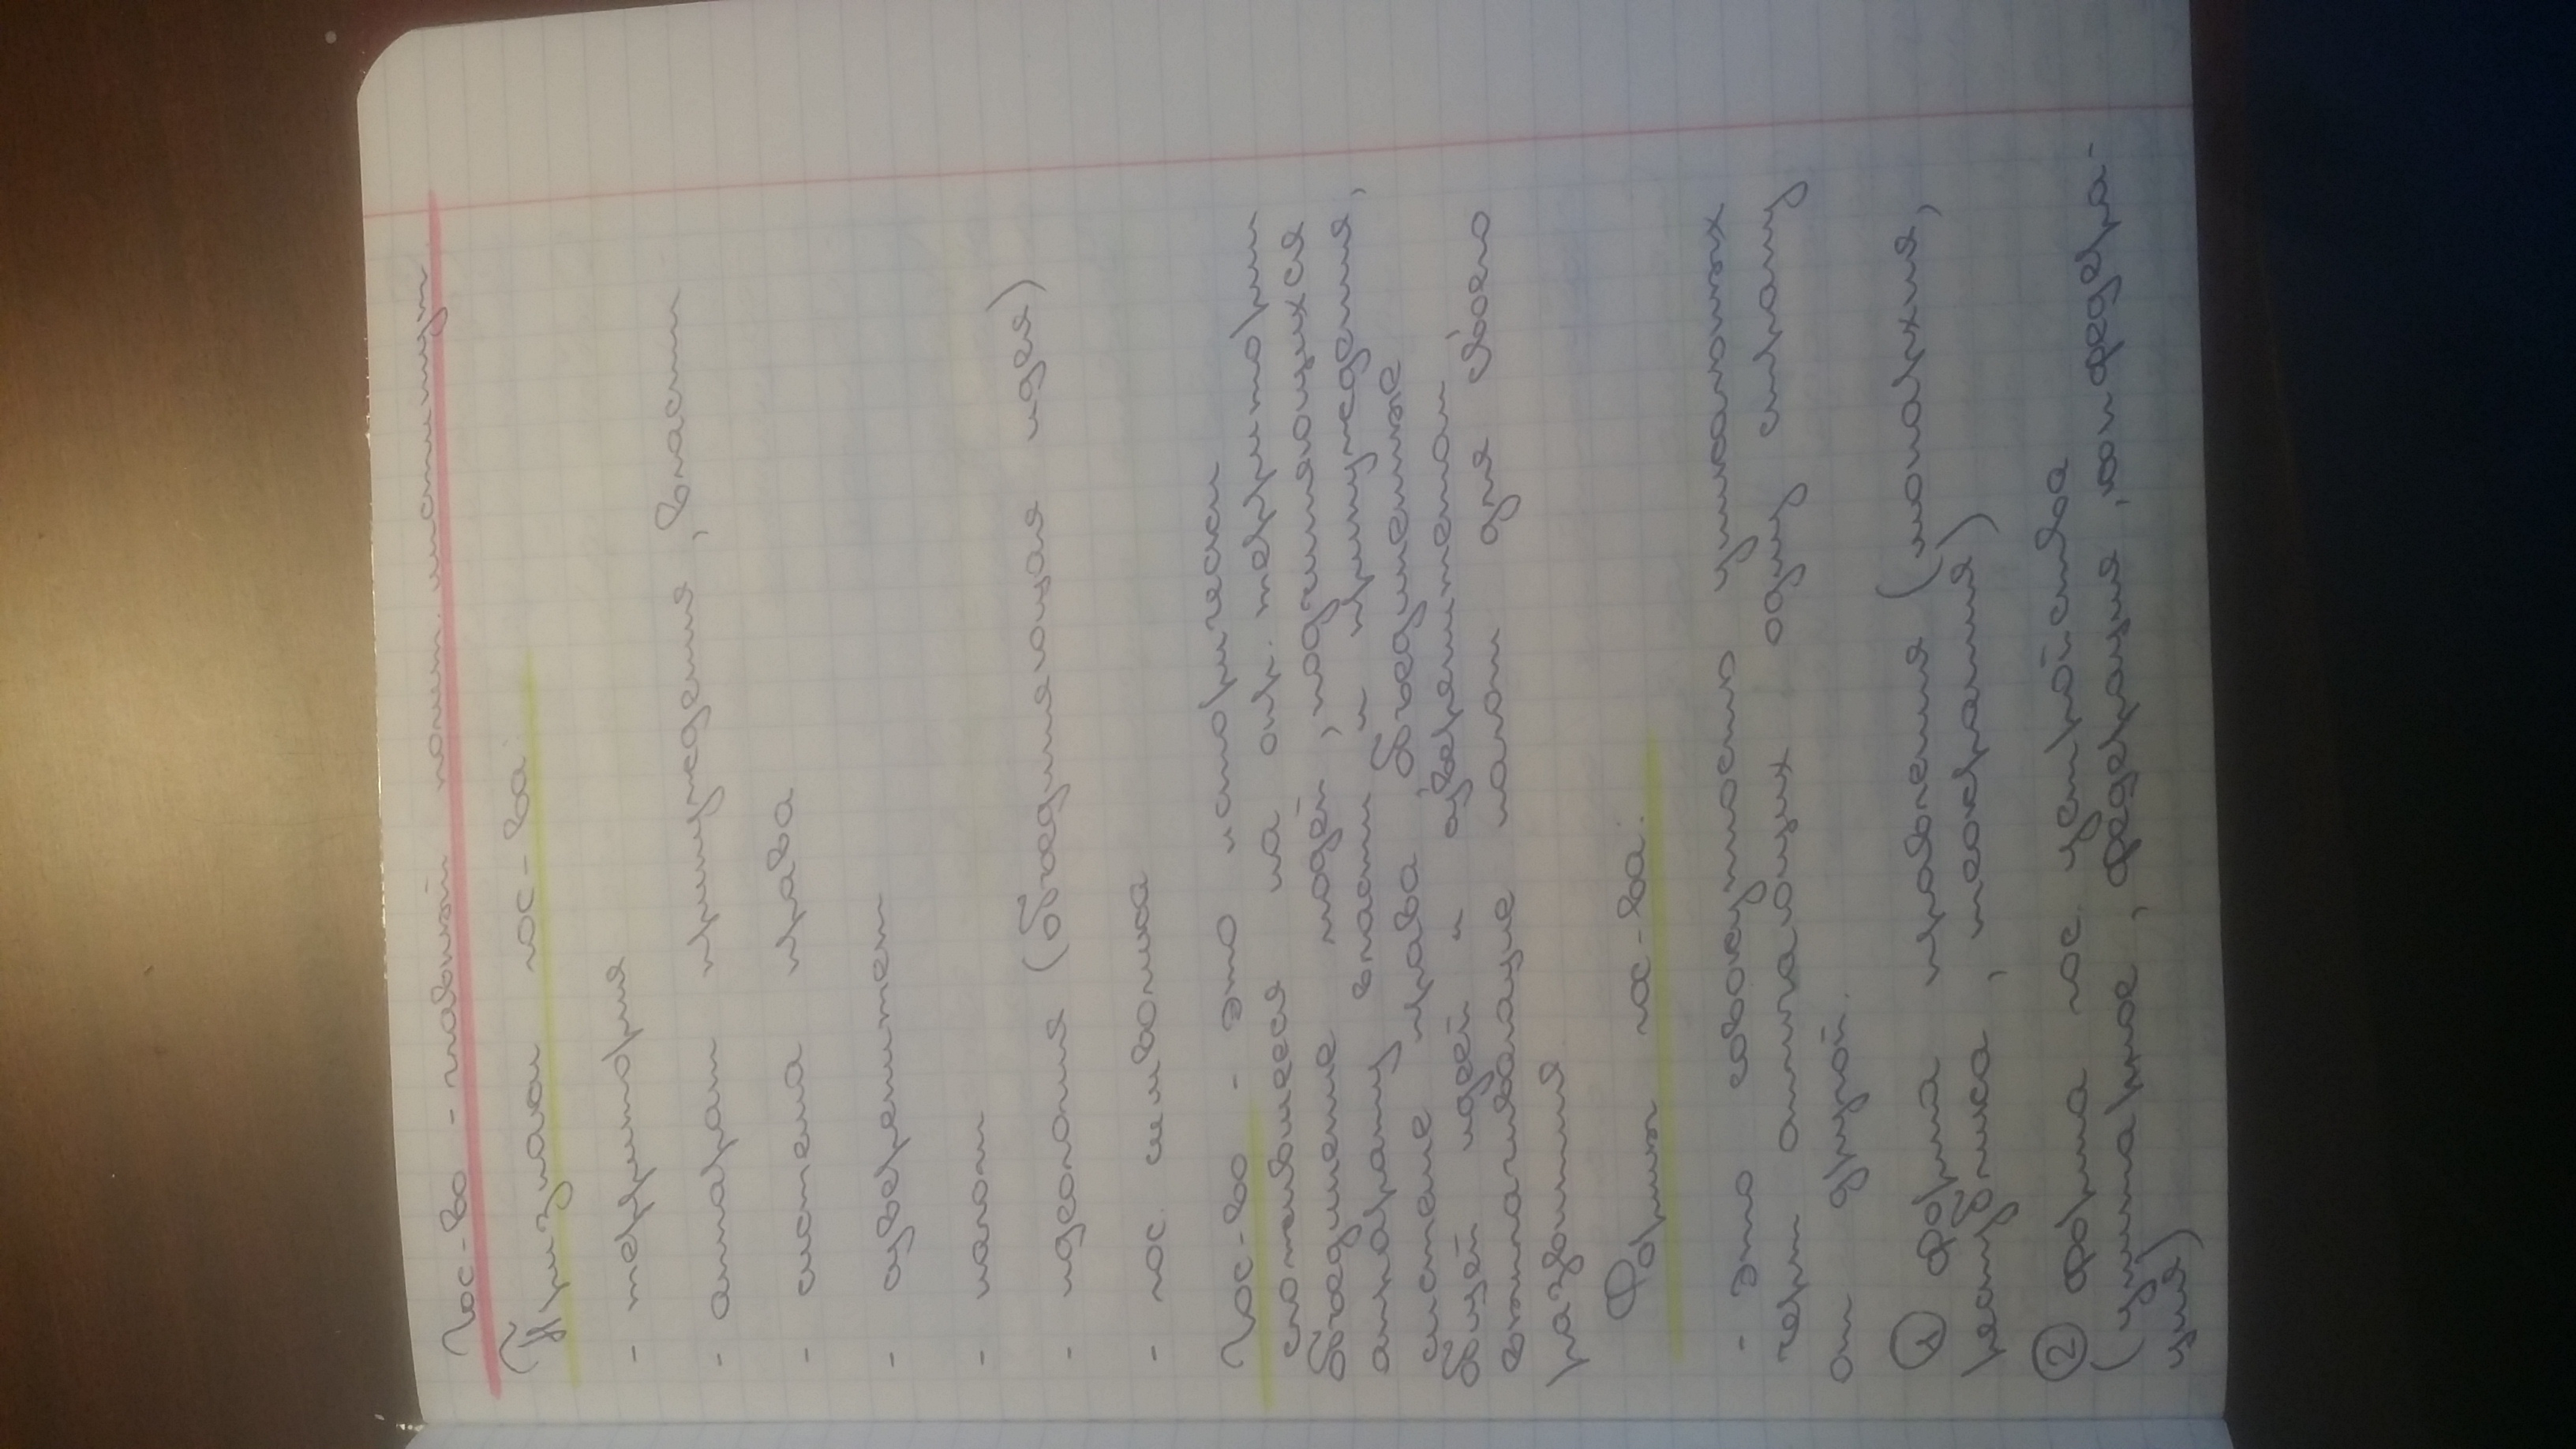 Гос-во - главный полит. институт
Признаки гос-ва:
- территория
- аппарат принуждения, власти
- система права
- суверенитет
- налоги
- идеология (объединяющая идея)
- гос. символика
Гос-во - это исторически
сложившееся на опр. территории
объединение людей, подчиняющихся
аппарату власти и принуждения,
системе права, объединённые
общей идеей и суверенитетом
выплачивающие налоги для своего
развития
Формы гос-ва:
- это совокупность уникальных
черт отличающих одну страну
от другой.
① форма правления (монархия,
республика, теократия)
② форма гос. устройства
(унитарное, федерация, конфедера-
ция)